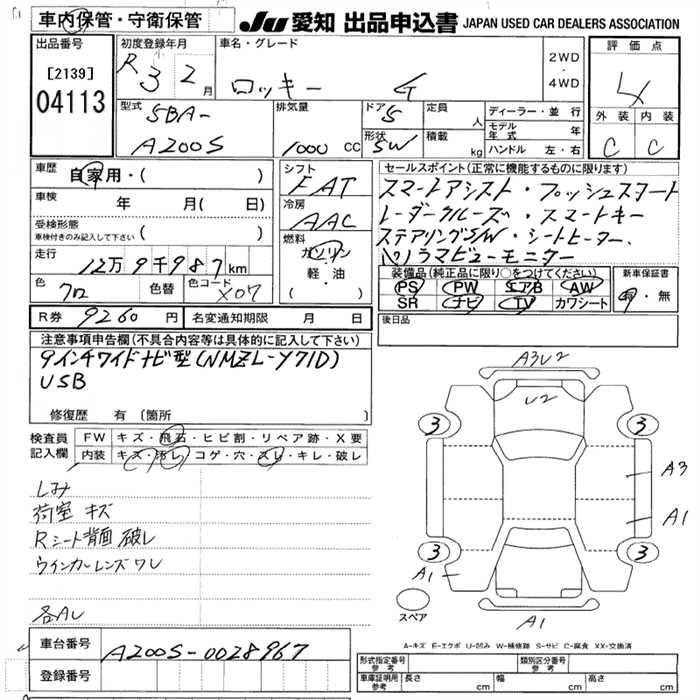 車内保管・守衛保管
JU 愛知 出品申込書 JAPAN USED CAR DEALERS ASSOCIATION
出品番号
[2139]
04113
初度登録年月
R 3 2月
車名・グレード
ロッキー G
2WD
・
4WD
評価点
4
外装 内装
C C
型式
5BA-
A200S
排気量
1000 CC
ドア 5
形状 SW
定員 人
積載 kg
ディーラー・並行
モデル年式 年
ハンドル 左・右
車歴
自家用・( )
車検 年 月( 日)
受検形態
車検付きのみ記入して下さい ( )
走行 12万9千987km
色 クロ 色替 色コード X07
シフト
FAT
冷房
AAC
燃料
ガソリン
軽油
( )
セールスポイント(正常に機能するものに限ります)
スマートアシスト・プッシュスタート
レーダークルーズ・スマートキー
ステアリングSW・シートヒーター、
パノラマビューモニター
装備品(純正品に限り○をつけてください)
PS PW エアB AW
SR ナビ TV カワシート
新車保証書
有・無
R券 9260円 名変通知期限 月 日
後日品
注意事項申告欄(不具合内容等は具体的に記入して下さい)
9インチワイドナビ型(NMZL-Y71D)
USB
修復歴 有(箇所 )
検査員
記入欄
FW キズ・飛石・ヒビ割・リペア跡・X要
内装 キズ・汚レ・コゲ・穴・スレ・キレ・破レ
しみ
荷室 キズ
Rシート背面 破レ
ウインカーレンズワレ
各AL
A3U2
U2
3 3
A3
A1
3 3
A1
スペア
A1
A-キズ E-エクボ U-凹み W-補修跡 S-サビ C-腐食 XX-交換済
車台番号 A200S-0028967
登録番号
形式指定番号
参考
類別区分番号
参考
車庫証明用
参考
長さ cm 幅 cm 高さ cm